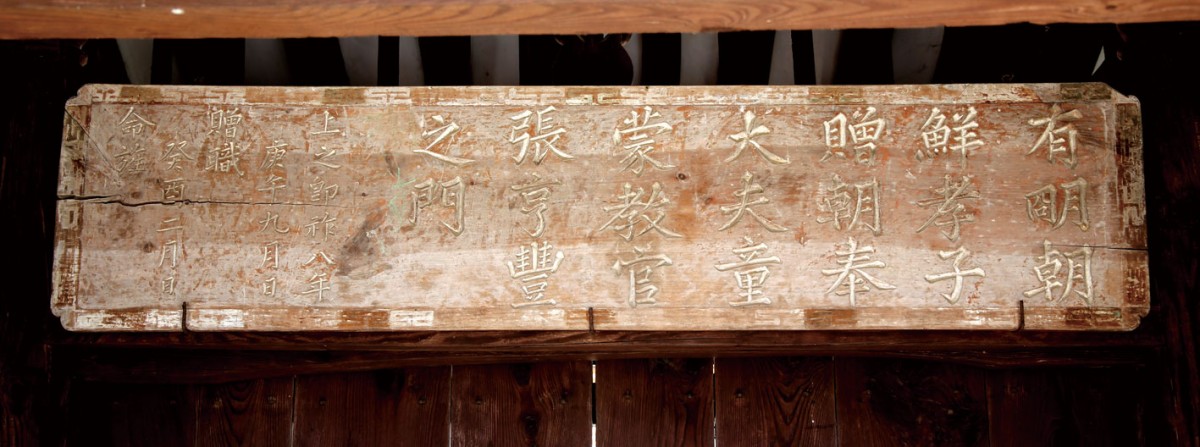 有明朝
鮮孝子
贈朝奉
大夫童
蒙教官
張亨豐
之門
上之卽祚八年
庚午九月日
贈職
癸酉二月日
命旌